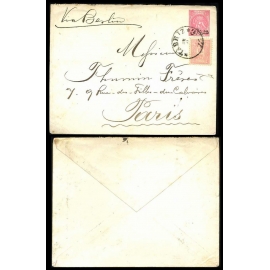 Via Berlin
Messieurs
Thumin Frères
7, 9 Rue des Filles du Calvaires
Paris